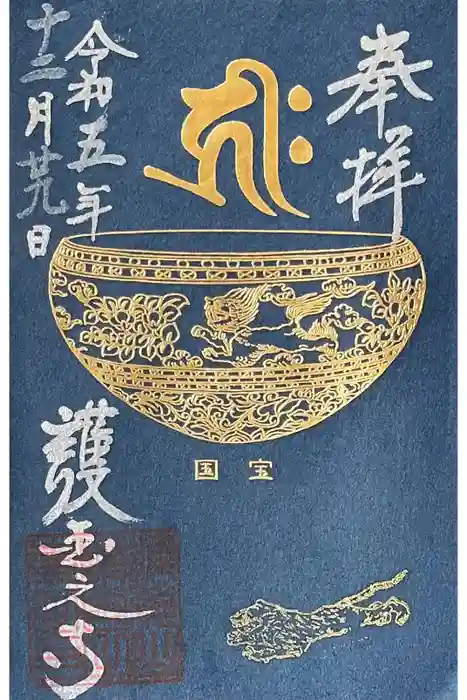 奉拝
𑖮𑖿𑖨𑖱𑖾
令和五年
十二月廿九日
国宝
護国之寺